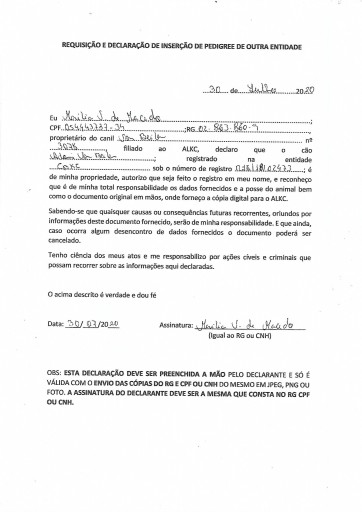 REQUISIÇÃO E DECLARAÇÃO DE INSERÇÃO DE PEDIGREE DE OUTRA ENTIDADE
30 de Julho 2020
Eu Marilia V. de Macedo
CPF ;RG
proprietário do canil Von nº
filiado ao ALKC, declaro que o cão
Von registrado na entidade
sob o número de registro ; é
de minha propriedade, autorizo que seja feito o registro em meu nome, e reconheço
que é de minha total responsabilidade os dados fornecidos e a posse do animal bem
como o documento original em mãos, onde forneço a cópia digital para o ALKC.
Sabendo-se que quaisquer causas ou consequências futuras recorrentes, oriundos por
informações deste documento fornecido, serão de minha responsabilidade. E que ainda,
caso ocorra algum desencontro de dados fornecidos o documento poderá ser
cancelado.
Tenho ciência dos meus atos e me responsabilizo por ações cíveis e criminais que
possam recorrer sobre as informações aqui declaradas.
O acima descrito é verdade e dou fé
Data: 30/07/2020 Assinatura: Marilia V. de Macedo
(Igual ao RG ou CNH)
OBS: ESTA DECLARAÇÃO DEVE SER PREENCHIDA A MÃO PELO DECLARANTE E SÓ É
VÁLIDA COM O ENVIO DAS CÓPIAS DO RG E CPF OU CNH DO MESMO EM JPEG, PNG OU
FOTO. A ASSINATURA DO DECLARANTE DEVE SER A MESMA QUE CONSTA NO RG CPF
OU CNH.